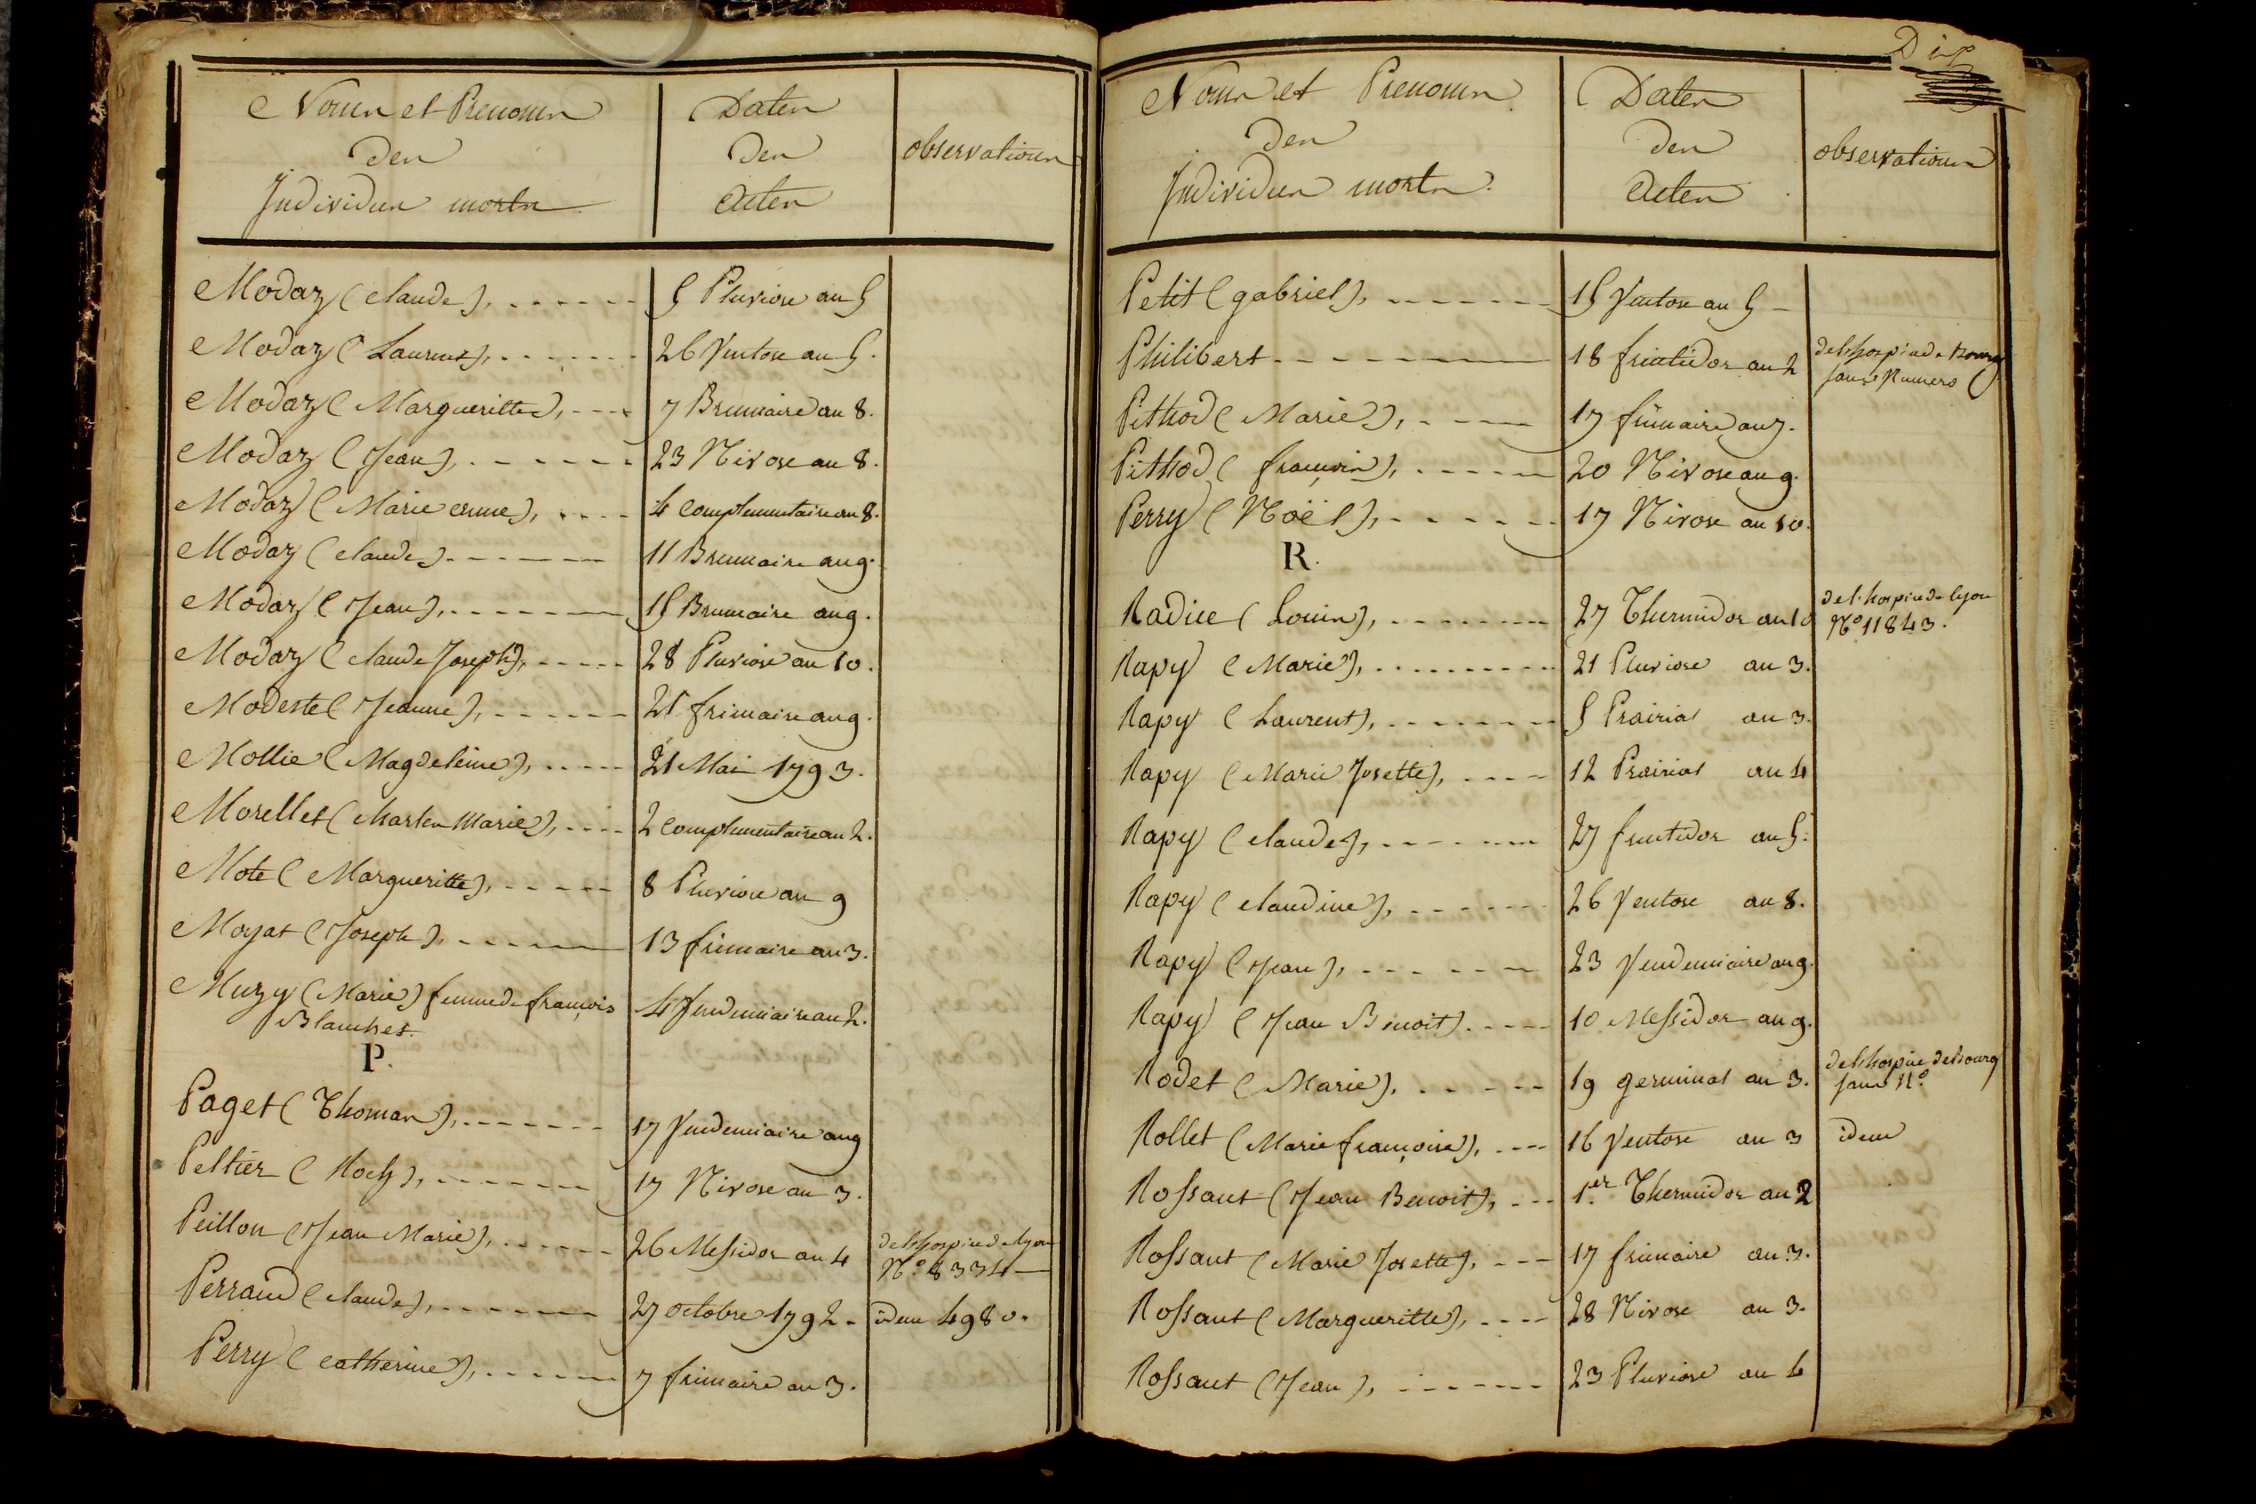 Noms et Prenoms
Des
Individus morts
Dates
Des
Actes
observations
Modaz (claude), 5 Pluviose an 5
Modaz (Laurent), 26 Ventose an 5.
Modaz (Margueritte), 7 Brumaire an 8.
Modaz (Jean), 23 Nivose an 8.
Modaz (Marie), 4 complementaire an 8.
Modaz (claude) 11 Brumaire an 9.
Modaz (Jean), 15 Brumaire an 9.
Modaz (claude Joseph), 28 Pluviose an 10.
Modeste (Jeanne), frimaire an 9.
Mollie (Magdeleine), 21 Mai 1793.
Morellet (charles Marie), 2 complementaire an 2.
Mote (Margueritte), 8 Pluviose an 9
Moyat (Joseph), 13 frimaire an 3.
Muzy (Marie) femme de françois 4 Vendemiaire an 2.
Blanchet.
P.
Paget (Thomas), 17 Vendemiaire an 9
Peltier (Roch), 17 Nivose an 3.
Peillon (Jean Marie), 26 Messidor an 4 de l'hospice de lyon
N.° 8334
Perraud (claude), 27 octobre 1792. idem 4980.
Perry (catherine), 7 frimaire an 3.
Dix
Noms et Prenoms
Des
Individus morts.
Dates
Des
Actes
observations
Petit (gabriel), 15 Ventose an 5
Philibert 18 fructidor an 2 de l'hospice de Bourg
sans Numero
Pithod (Marie), 17 frimaire an 7.
Pithod (françois), 20 Nivose an 9.
Perry (Noël), 17 Nivose an 10.
R.
Radice (Louis), 27 Thermidor an 10 de l'hospice de lyon
N.° 11843.
Rapy (Marie), 21 Pluviose an 3.
Rapy (Laurent), 5 Prairial an 3.
Rapy (Marie Josette), 12 Prairial an 4
Rapy (claude), 27 fructidor an 5.
Rapy (claudine), 26 Ventose an 8.
Rapy (Jean), 23 Vendemiaire an 9.
Rapy (Jean Benoit). 10 Messidor an 9.
Rodet (Marie), 19 germinal an 3. de l'hospice de Bourg
sans N.°
Rollet (Marie françoise), 16 Ventose an 3 idem
Rossant (Jean Benoit), 1.er Thermidor an 2
Rossant (Marie Josette), 17 frimaire an 3.
Rossant (Margueritte), 28 Nivose an 3.
Rossant (Jean), 23 Pluviose an 4